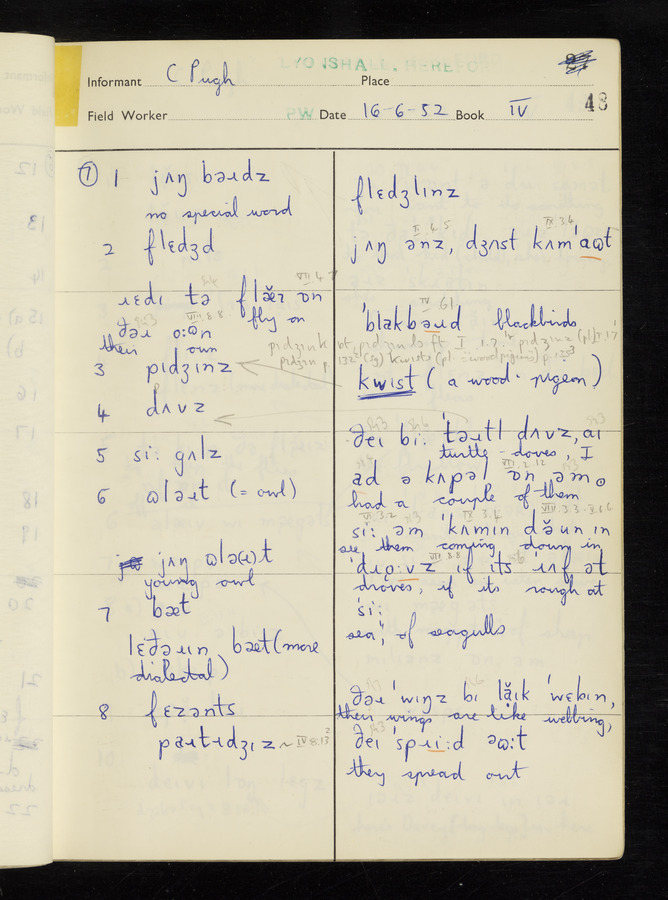 LYONSHALL, HEREFO
Informant C Pugh Place
Field Worker PW Date 16-6-52 Book IV 43
⑦ 1 jʌŋ bəɹdz
no special word
2 flɛdʒd
ɹɛdɪ tə flæ̌ɪ ɒn
fly on
ðəɪ oːʊn
their own
3 pɪdʒɪnz
4 dʌvz
5 siː gʌlz
6 ɷləɹt (= owl)
jʌŋ ɷlə(ɹ)t
young owl
7 bæt
lɛðəɹɪn bæt (more
dialectal)
8 fɛzənts
paɹtɹɪdʒɪz ~ IV 8.13
flɛdʒlɪnz
jʌŋ ənz, dʒʌst kʌm'aɷt
'blakbəɹd blackbirds
kwɪst (a wood-pigeon)
ðeɪ biː 'təɹtl dʌvz, aɪ
turtle-doves, I
ad ə kʌpəl ɒn əm.
had a couple of them
siː əm 'kʌmɪn dǎʊn ɪn
see them coming down in
'dɹoːvz ɪf ɪts ɹʌf ət
droves, if its rough at
'siː
sea", of seagulls
ðəɹ 'wɪŋz bɪ lǎɪk 'wɛbɪn,
their wings are like webbing,
ðeɪ 'spɹɪːd əɷːt
they spread out